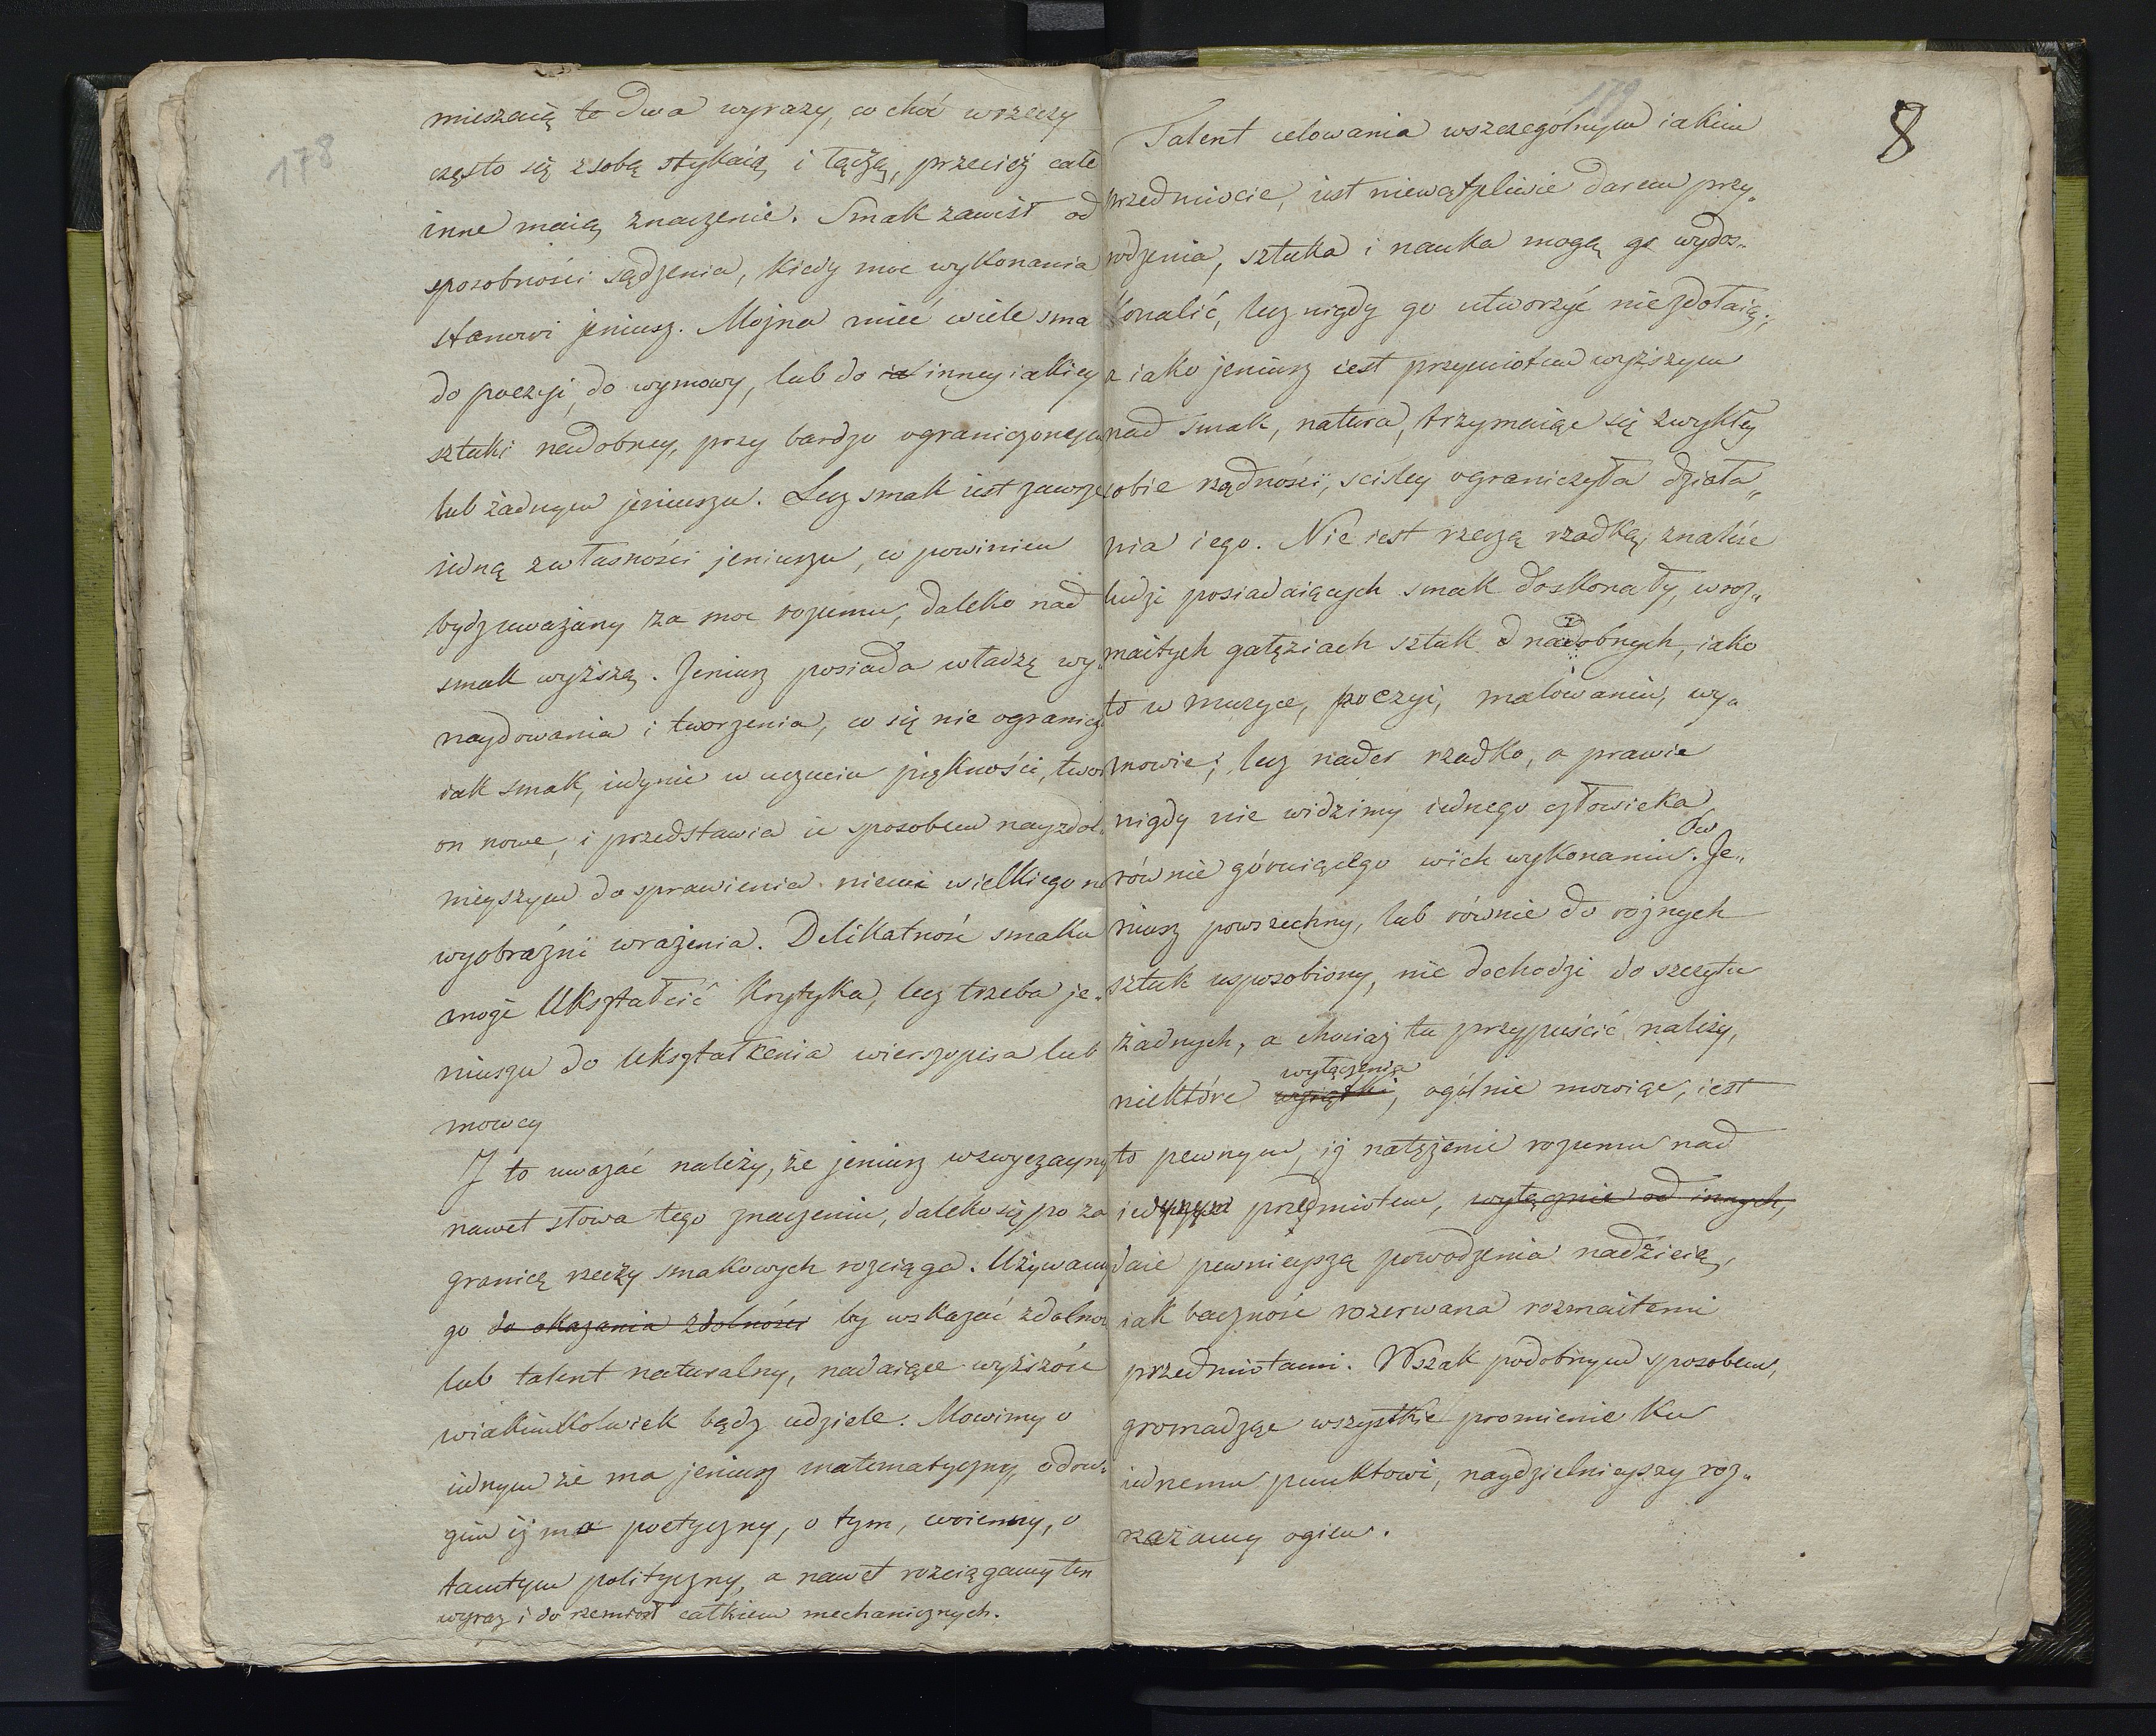 178
mieszaią te dwa wyrazy, co choć wrzeczy
często się zsobą stykaią i łączą, przecięż całe
inne maią znaczenie. Smak zawisł od
sposobności sądzenia, kiedy moc wykonania
stanowi jeniusz. Można mieć wiele sma
do poezyi, do wymowy, lub do inney iakiey
sztuki nadobney, przy bardzo ograniczonym
lub żadnym jeniuszu. Lecz smak iest zawsze
iedną zwłasności jeniuszu, co powinien
bydz uważany za moc rozumu, daleko nad
smak wyższą. Jeniusz posiada władzę wy„
naydowania i tworzenia, co się nie ogranicz
iak smak, iedynie w uczuciu piękności, twor
on nowe, i przedstawia ie sposobem nayzdol„
nieyszym do sprawienia niemi wielkiego na
wyobraźni wrażenia. Delikatność smaku
może Ukształcić krytyka, lecz trzeba je„
niuszu do Ukształcenia wierszopisa lub
mowcy
I to uważać należy, że jeniusz wzwyczayny
nawet słowa tego znaczeniu, daleko się po za
granicę rzeczy smakowych rozciąga. Używamy
go do okazania zdolności by wskazać zdolnoś
lub talent naturalny, nadaiące wyższość
wiakimkolwiek bądź udziele. Mowimy o
iednym że ma jeniusz matematyczny, o dru„
gim iż ma poetyczny, o tym, woienny, o
tamtym polityczny, a nawet rozciągamy ten
wyraz i do rzemiosł całkiem mechanicznych.
179
8
Talent celowania wszczególnym iakim
przedmiocie, iest niewątpliwie darem przy„
rodzenia, sztuka i nauka mogą go wydos„
konalić, lecz nigdy go utworzyć niezdołaią;
a iako jeniusz iest przymiotem wyższym
nad smak, natura, trzymaiąc się zwykłey
sobie rządności, scisley ograniczyła działa„
nia iego. Nie iest rzeczą rzadką, znaleść
ludzi posiadaiących smak doskonały, w roz„
maitych gałęziach sztuk nadobnych, iako
to w muzyce, poezyi, malowaniu, wy„
mowie; lecz nader rzadko, a prawie
nigdy nie widzimy iednego człowieka
równie góruiącego wich wykonaniu. Je„
niusz powszechny, lub równie do rożnych
sztuk usposobiony, nie dochodzi do szczytu
żadnych, a chociaż tu przypuścić należy,
wyłączenia
niektóre wyiątki, ogólnie mowiąc, iest
to pewnym, iż natężenie rozumu nad
iedynym przedmiotem, wyłącznie od innych,
daie pewnieyszą powodzenia nadzieię,
iak baczność rozerwana rozmaitemi
przedmiotami. Wszak podobnym sposobem,
gromadząc wszystkie promienie ku
iednemu punktowi, naydzielnieyszy roz„
rzażamy ogień.